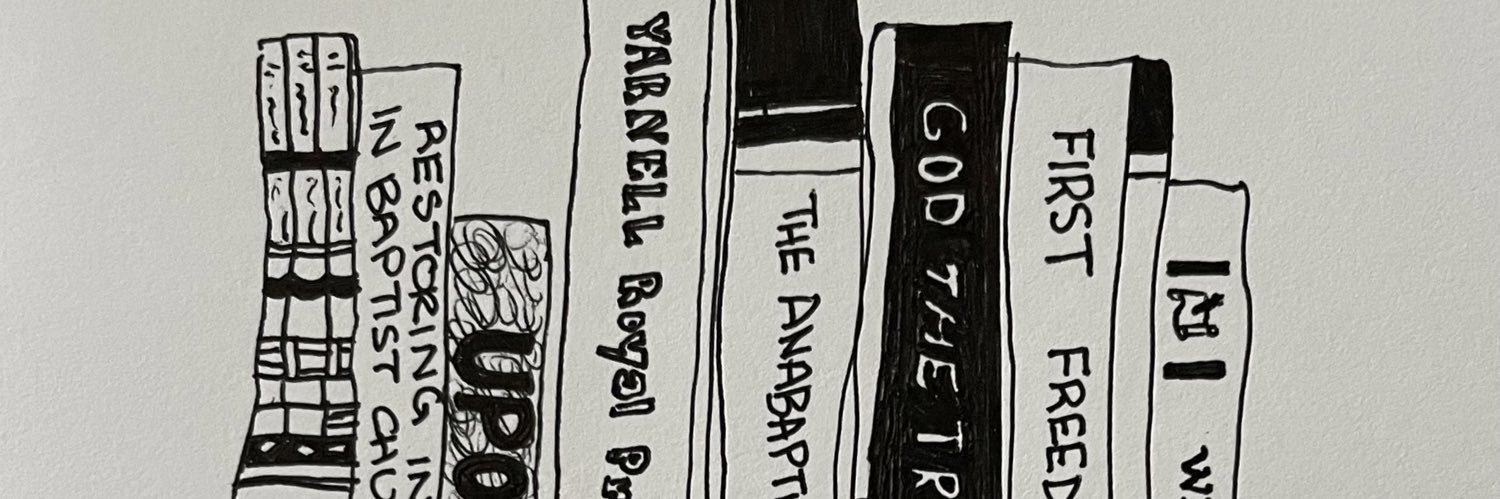 RESTORING IN
IN BAPTIST CHU
UPO
YARNELL Royal Pr
THE ANABAPTI
GOD THE TR
FIRST FREED
W